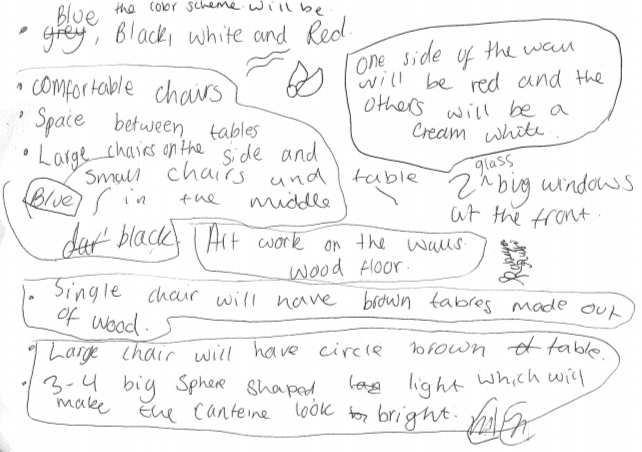 Blue the color scheme will be
• grey, Black, white and Red.
• comfortable chairs
• Space between tables
• Large chairs on the side and
small chairs and table
Blue in the middle
dar black
One side of the wall
will be red and the
others will be a
cream white.
2 glass big windows
at the front.
Art work on the walls.
wood floor.
• Single chair will have brown tables made out
of wood.
• Large chair will have circle brown table.
• 3-4 big sphere shaped light which will
make the canteine look bright.